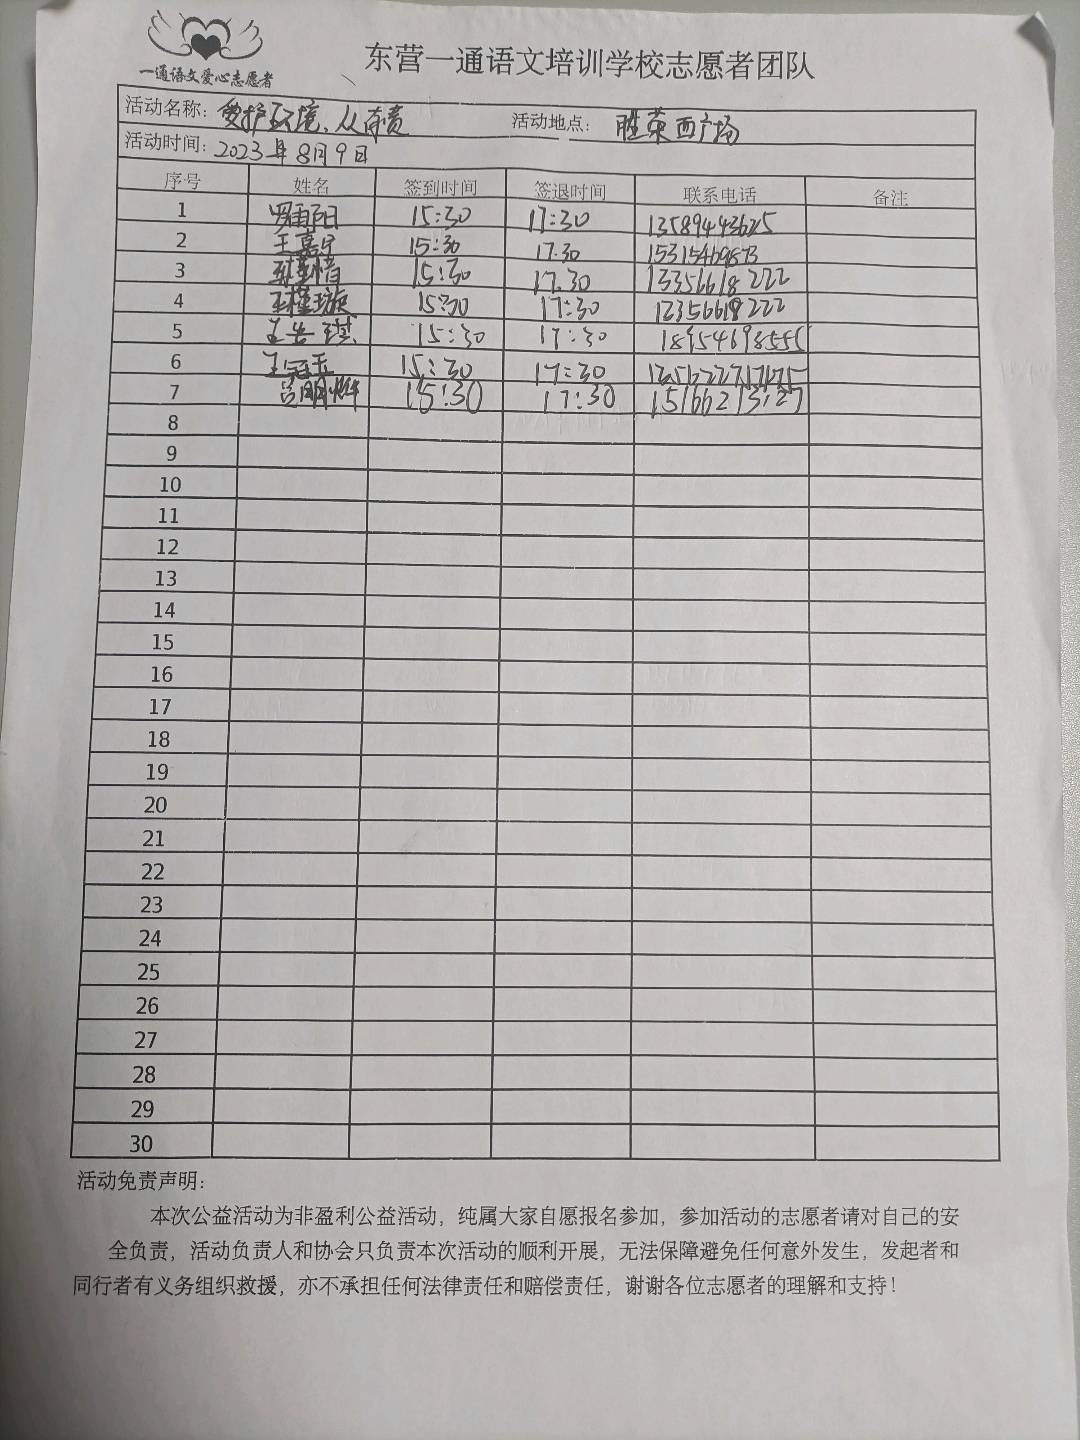 东营一通语文培训学校志愿者团队
一通语文爱心志愿者
活动名称: 爱护环境、从有责 活动地点: 胜采西广场
活动时间: 2023年8月9日
序号 姓名 签到时间 签退时间 联系电话 备注
1 罗雨阳 15:30 17:30 13589443625
2 王嘉宁 15:30 17.30
3 15:30 17.30 13356618222
4 15:30 17:30 12356618222
5 15:30 17:30 18954698555
6 王冠玉 15:30 17:30
7 吕明烨 15:30 17:30 15166213127
8
9
10
11
12
13
14
15
16
17
18
19
20
21
22
23
24
25
26
27
28
29
30
活动免责声明:
本次公益活动为非盈利公益活动，纯属大家自愿报名参加，参加活动的志愿者请对自己的安
全负责，活动负责人和协会只负责本次活动的顺利开展，无法保障避免任何意外发生，发起者和
同行者有义务组织救援，亦不承担任何法律责任和赔偿责任，谢谢各位志愿者的理解和支持！